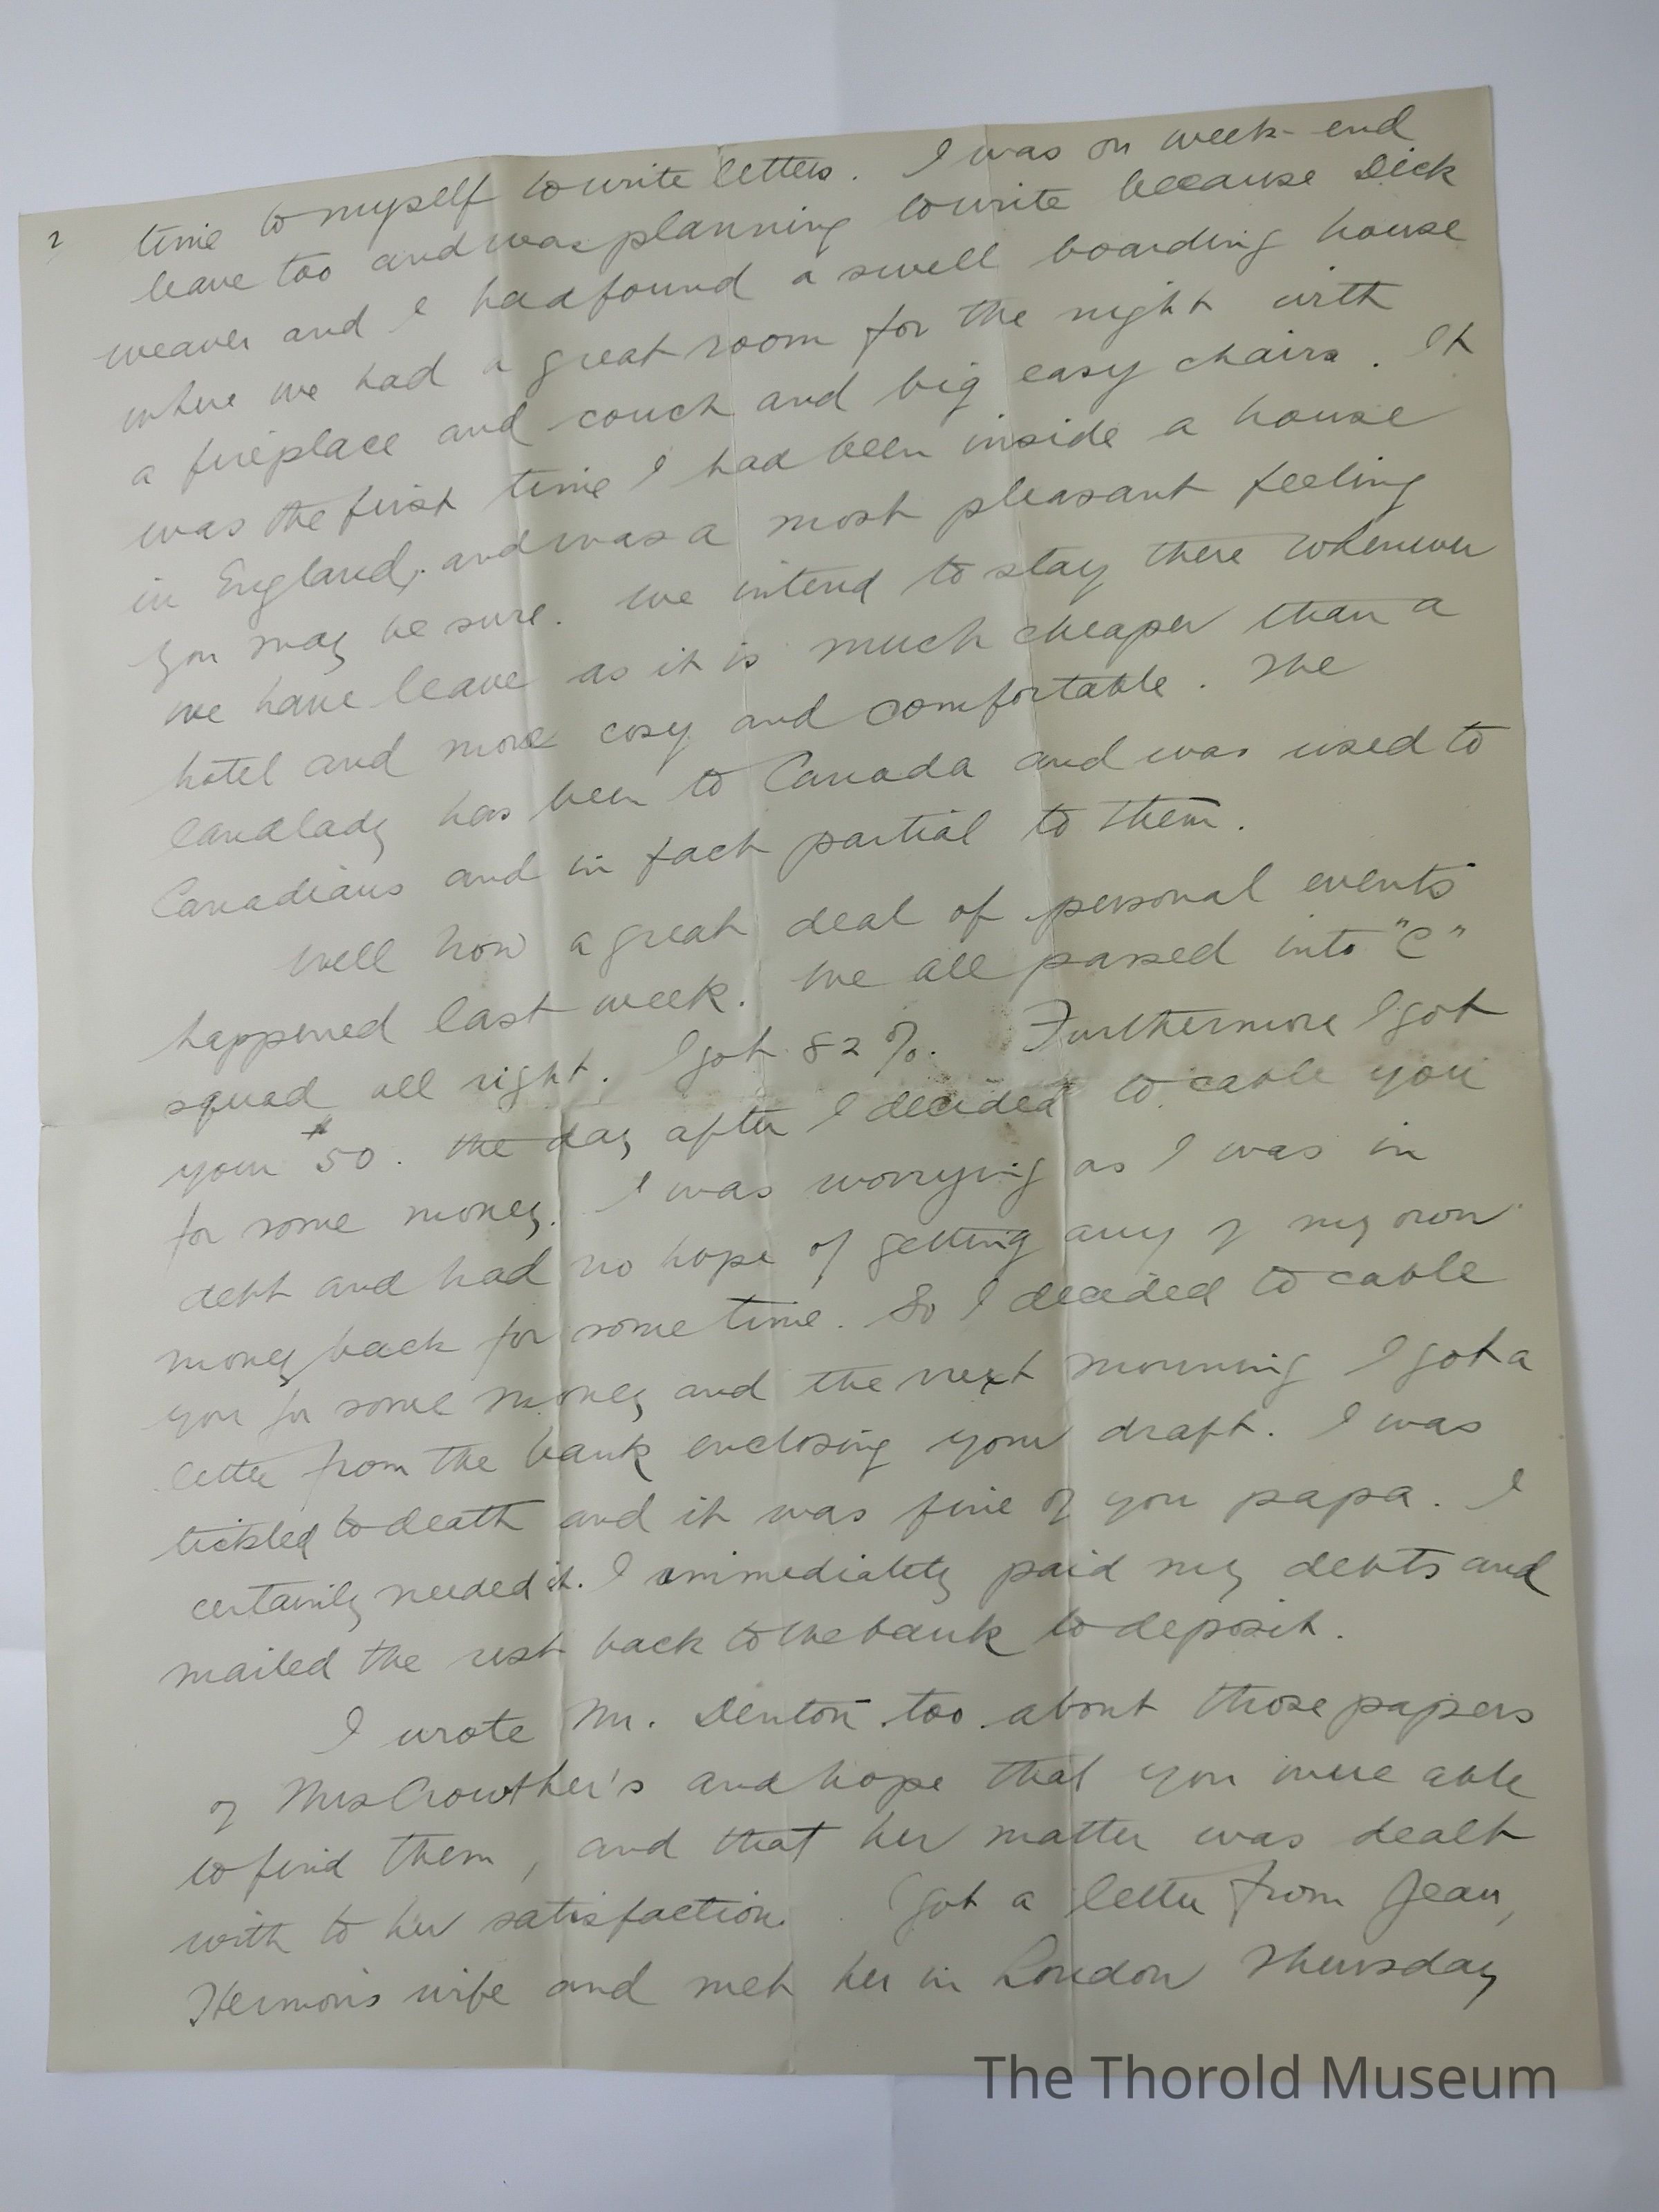 2
time to myself to write letters. I was on week-end
leave too and was planning to write because Dick
Weaver and I had found a swell boarding house
where we had a great room for the night with
a fireplace and couch and big easy chairs. It
was the first time I had been inside a house
in England, and was a most pleasant feeling
you may be sure. We intend to stay there whenever
we have leave as it is much cheaper than a
hotel and more cosy and comfortable. The
landlady has been to Canada and was used to
Canadians and in fact partial to them.
Well now a great deal of personal events
happened last week. We all passed into "C"
squad all right. I got 82%. Furthermore I got
your $50. the day after I decided to cable you
for some money. I was worrying as I was in
debt and had no hope of getting any of my own
money back for some time. So I decided to cable
you for some money and the next morning I got a
letter from the bank enclosing your draft. I was
tickled to death and it was fine of you papa. I
certainly needed it. I immediately paid my debts and
mailed the rest back to the bank to deposit.
I wrote Mr. Denton too about those papers
of Mrs Crowther's and hope that you were able
to find them, and that her matter was dealt
with to her satisfaction. I got a letter from Jean,
Hermon's wife and met her in London Thursday
The Thorold Museum